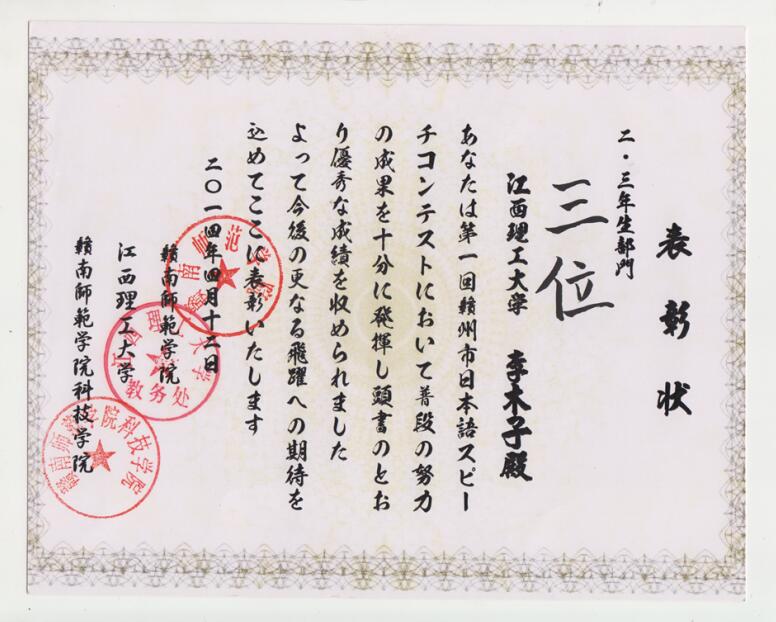 表彰状
二・三年生部門
三位
江西理工大学 李木子殿
あなたは第一回贛州市日本語スピー
チコンテストにおいて普段の努力
の成果を十分に発揮し頭書のとお
り優秀な成績を収められました
よって今後の更なる飛躍への期待を
込めてここに表彰いたします
二〇一四年四月十二日
贛南師範学院
江西理工大学
贛南師範学院科技学院
教务处